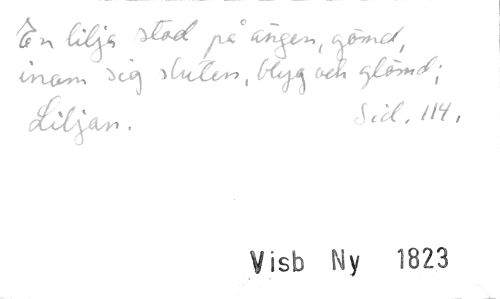 En lilja stod på ängen, gömd,
inom sig sluten, blyg och glömd;
Liljan. Sid. 114.
Visb Ny 1823